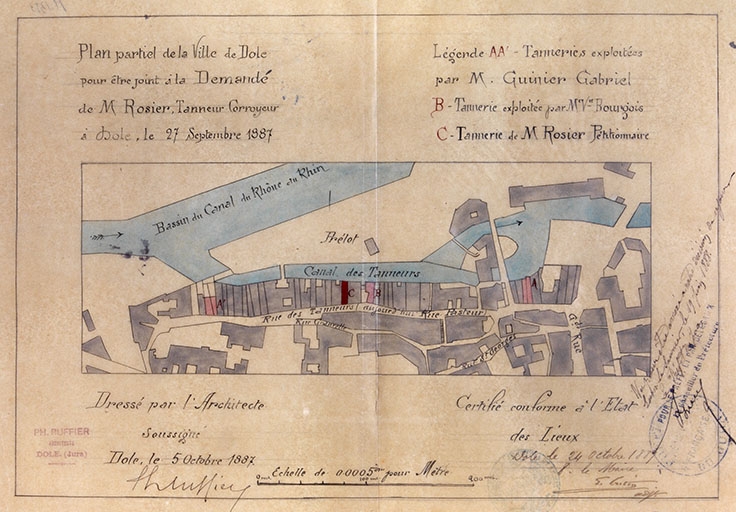 Plan partiel de la Ville de Dole
pour être joint à la Demandé
de M Rosier, Tanneur Corroyeur
à Dole, le 27 Septembre 1887
Légende AA' - Tanneries exploitées
par M. Guinier Gabriel
B - Tannerie exploitée par Mme Vve Bourgeois
C - Tannerie de M Rosier Pétitionnaire
Bassin du Canal du Rhône au Rhin
Prélot
Canal des Tanneurs
A'
C
B
A
Rue des Tanneurs (aujourd'hui Rue Pasteur)
Rue Granvelle
Rue St Georges
Gde Rue
Dressé par l'Architecte
Soussigné
Dole, le 5 Octobre 1887
PH. RUFFIER
ARCHITECTE
DOLE. (Jura)
Certifié conforme à l'Etat
des Lieux
Dole le 24 octobre 1887
P. le Maire
Echelle de 0,0005m pour Mètre
0
100
200